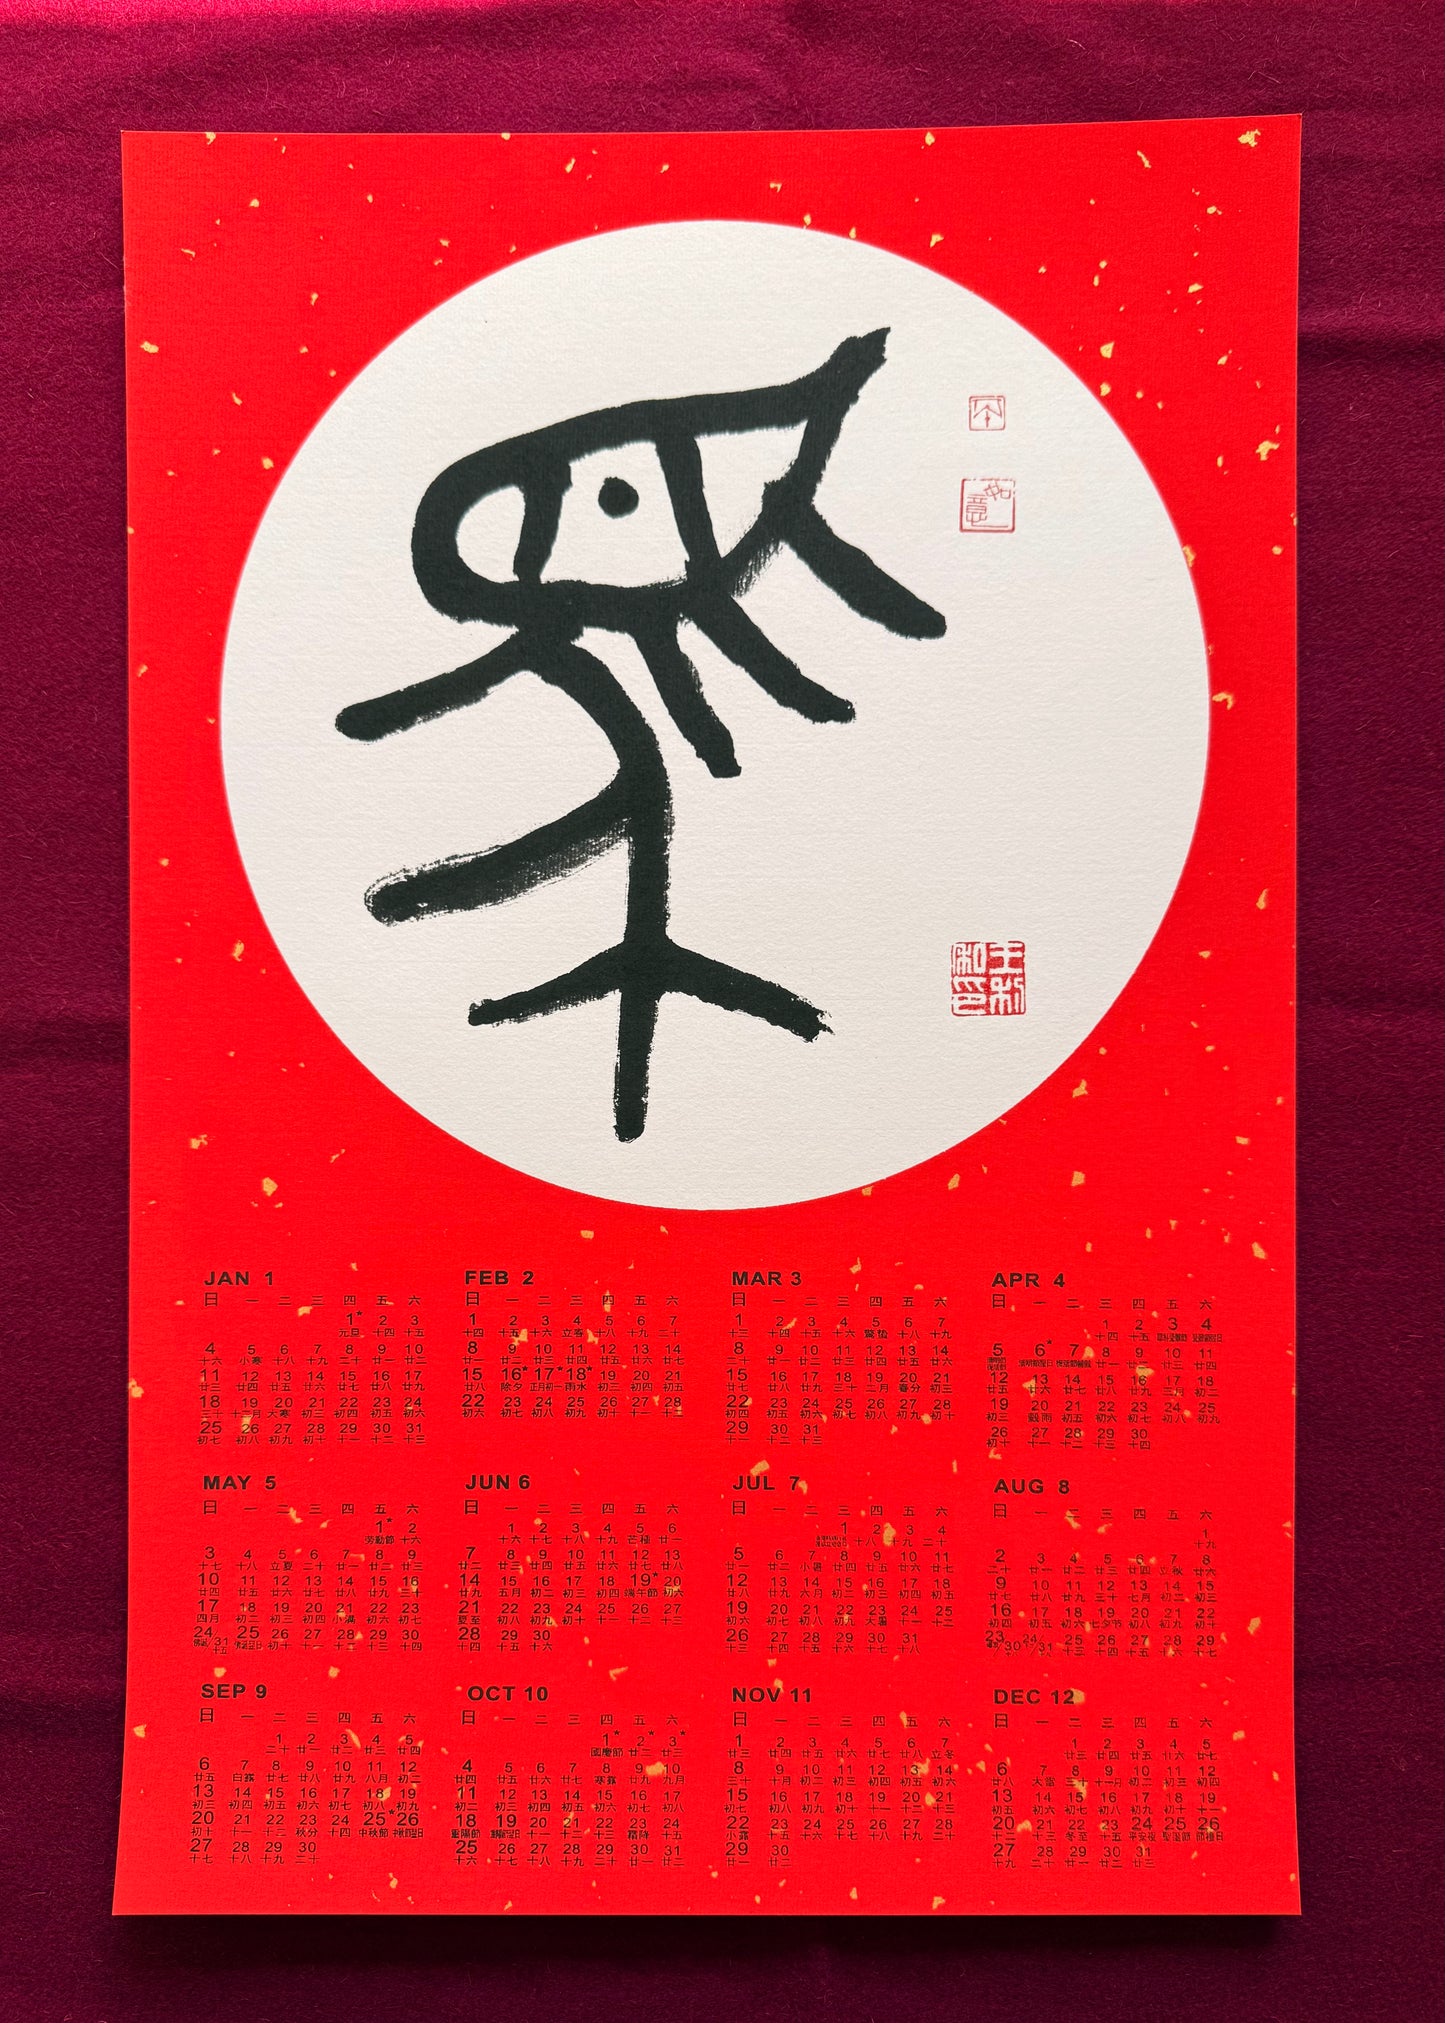 如意
王利和印
JAN 1
日 一 二 三 四 五 六
1* 2 3
元旦 十四 十五
4 5 6 7 8 9 10
十六 小寒 十八 十九 二十 廿一 廿二
11 12 13 14 15 16 17
廿三 廿四 廿五 廿六 廿七 廿八 廿九
18 19 20 21 22 23 24
三十 十二月 大寒 初三 初四 初五 初六
25 26 27 28 29 30 31
初七 初八 初九 初十 十一 十二 十三
FEB 2
日 一 二 三 四 五 六
1 2 3 4 5 6 7
十四 十五 十六 立春 十八 十九 二十
8 9 10 11 12 13 14
廿一 廿二 廿三 廿四 廿五 廿六 廿七
15 16* 17* 18* 19 20 21
廿八 除夕 正月初一 雨水 初三 初四 初五
22 23 24 25 26 27 28
初六 初七 初八 初九 初十 十一 十二
MAR 3
日 一 二 三 四 五 六
1 2 3 4 5 6 7
十三 十四 十五 十六 驚蟄 十八 十九
8 9 10 11 12 13 14
二十 廿一 廿二 廿三 廿四 廿五 廿六
15 16 17 18 19 20 21
廿七 廿八 廿九 三十 二月 春分 初三
22 23 24 25 26 27 28
初四 初五 初六 初七 初八 初九 初十
29 30 31
十一 十二 十三
APR 4
日 一 二 三 四 五 六
1 2 3 4
十四 十五
5 6* 7 8 9 10 11
清明節翌日 廿一 廿二 廿三 廿四
12 13 14 15 16 17 18
廿五 廿六 廿七 廿八 廿九 三月 初二
19 20 21 22 23 24 25
初三 穀雨 初五 初六 初七 初八 初九
26 27 28 29 30
初十 十一 十二 十三 十四
MAY 5
日 一 二 三 四 五 六
1* 2
勞動節 十六
3 4 5 6 7 8 9
十七 十八 立夏 二十 廿一 廿二 廿三
10 11 12 13 14 15 16
廿四 廿五 廿六 廿七 廿八 廿九 三十
17 18 19 20 21 22 23
四月 初二 初三 初四 小滿 初六 初七
24/31 25 26 27 28 29 30
佛誕/十五 佛誕翌日 初十 十一 十二 十三 十四
JUN 6
日 一 二 三 四 五 六
1 2 3 4 5 6
十六 十七 十八 十九 芒種 廿一
7 8 9 10 11 12 13
廿二 廿三 廿四 廿五 廿六 廿七 廿八
14 15 16 17 18 19* 20
廿九 五月 初二 初三 初四 端午節 初六
21 22 23 24 25 26 27
夏至 初八 初九 初十 十一 十二 十三
28 29 30
十四 十五 十六
JUL 7
日 一 二 三 四 五 六
1 2 3 4
十八 十九 二十
5 6 7 8 9 10 11
廿一 廿二 小暑 廿四 廿五 廿六 廿七
12 13 14 15 16 17 18
廿八 廿九 六月 初二 初三 初四 初五
19 20 21 22 23 24 25
初六 初七 初八 初九 大暑 十一 十二
26 27 28 29 30 31
十三 十四 十五 十六 十七 十八
AUG 8
日 一 二 三 四 五 六
1
十九
2 3 4 5 6 7 8
二十 廿一 廿二 廿三 廿四 立秋 廿六
9 10 11 12 13 14 15
廿七 廿八 廿九 三十 七月 初二 初三
16 17 18 19 20 21 22
初四 初五 初六 七夕节 初八 初九 初十
23/30 24/31 25 26 27 28 29
十三 十四 十五 十六 十七
SEP 9
日 一 二 三 四 五 六
1 2 3 4 5
二十 廿一 廿二 廿三 廿四
6 7 8 9 10 11 12
廿五 白露 廿七 廿八 廿九 八月 初二
13 14 15 16 17 18 19
初三 初四 初五 初六 初七 初八 初九
20 21 22 23 24 25* 26
初十 十一 十二 秋分 十四 中秋節 中秋節翌日
27 28 29 30
十七 十八 十九 二十
OCT 10
日 一 二 三 四 五 六
1* 2* 3*
國慶節 廿二 廿三
4 5 6 7 8 9 10
廿四 廿五 廿六 廿七 寒露 廿九 九月
11 12 13 14 15 16 17
初二 初三 初四 初五 初六 初七 初八
18 19 20 21 22 23 24
重陽節 重陽節翌日 十一 十二 十三 霜降 十五
25 26 27 28 29 30 31
十六 十七 十八 十九 二十 廿一 廿二
NOV 11
日 一 二 三 四 五 六
1 2 3 4 5 6 7
廿三 廿四 廿五 廿六 廿七 廿八 立冬
8 9 10 11 12 13 14
三十 十月 初二 初三 初四 初五 初六
15 16 17 18 19 20 21
初七 初八 初九 初十 十一 十二 十三
22 23 24 25 26 27 28
小雪 十五 十六 十七 十八 十九 二十
29 30
廿一 廿二
DEC 12
日 一 二 三 四 五 六
1 2 3 4 5
廿三 廿四 廿五 廿六 廿七
6 7 8 9 10 11 12
廿八 大雪 三十 十一月 初二 初三 初四
13 14 15 16 17 18 19
初五 初六 初七 初八 初九 初十 十一
20 21 22 23 24 25 26
十二 十三 冬至 十五 平安夜 聖誕節 節禮日
27 28 29 30 31
十九 二十 廿一 廿二 廿三